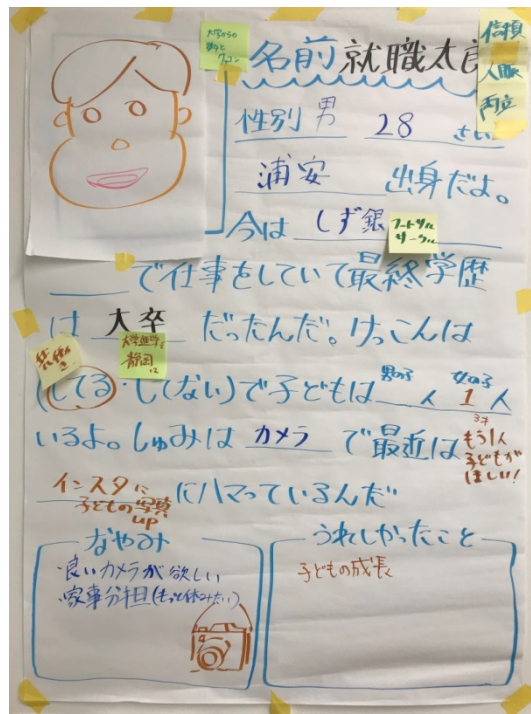 大学からの
名前 就職太郎
信頼
人脈
両立
性別 男 28 さい
浦安 出身だよ。
今は しず銀
フットサル
サークル
で仕事をしていて最終学歴
は 大卒 だったんだ。けっこんは
共働き
大学進学で
静岡に
(してる・してない)で子どもは 男の子 人 女の子 1 人
3才
いるよ。しゅみは カメラ で最近は
もう1人
子どもが
ほしい!
インスタに
子どもの写真
up
にハマっているんだ
なやみ
・良いカメラが欲しい
・家事分担(もっと休みたい)
うれしかったこと
子どもの成長